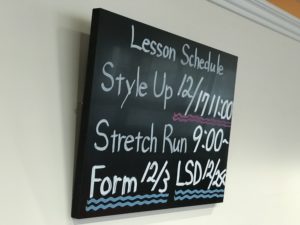 Lesson Schedule
Style Up 12/17 11:00
Stretch Run 9:00~
Form 12/3 LSD 12/28